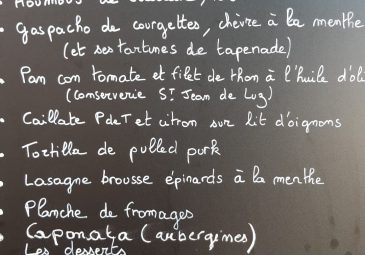 Houmous de
• Gaspacho de courgettes, chèvre à la menthe
(et ses tartines de tapenade)
• Pan con tomate et filet de thon à l'huile d'oli
(conserverie St Jean de Luz)
• Caillate PdeT et citron sur lit d'oignons
• Tortilla de pulled purk
• Lasagne brousse épinards à la menthe
• Planche de fromages
• Caponata (aubergines)
Les desserts